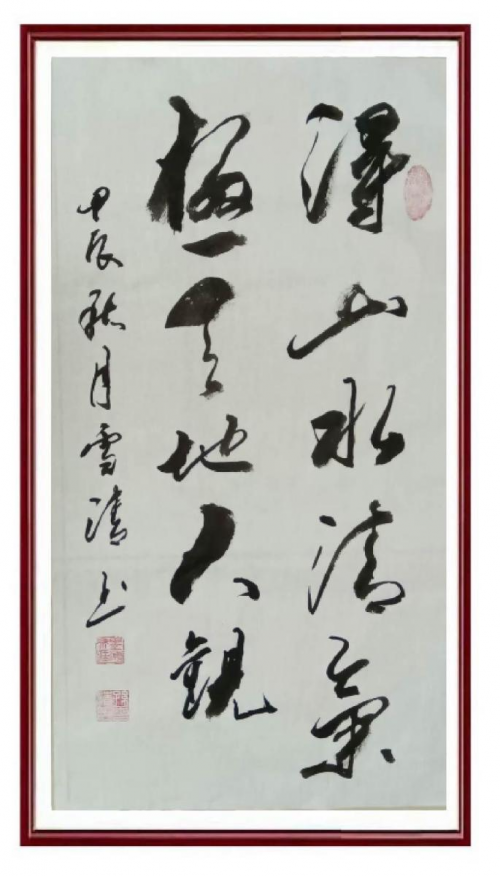 得山水清氣
極天地大觀
甲辰秋月雪清书